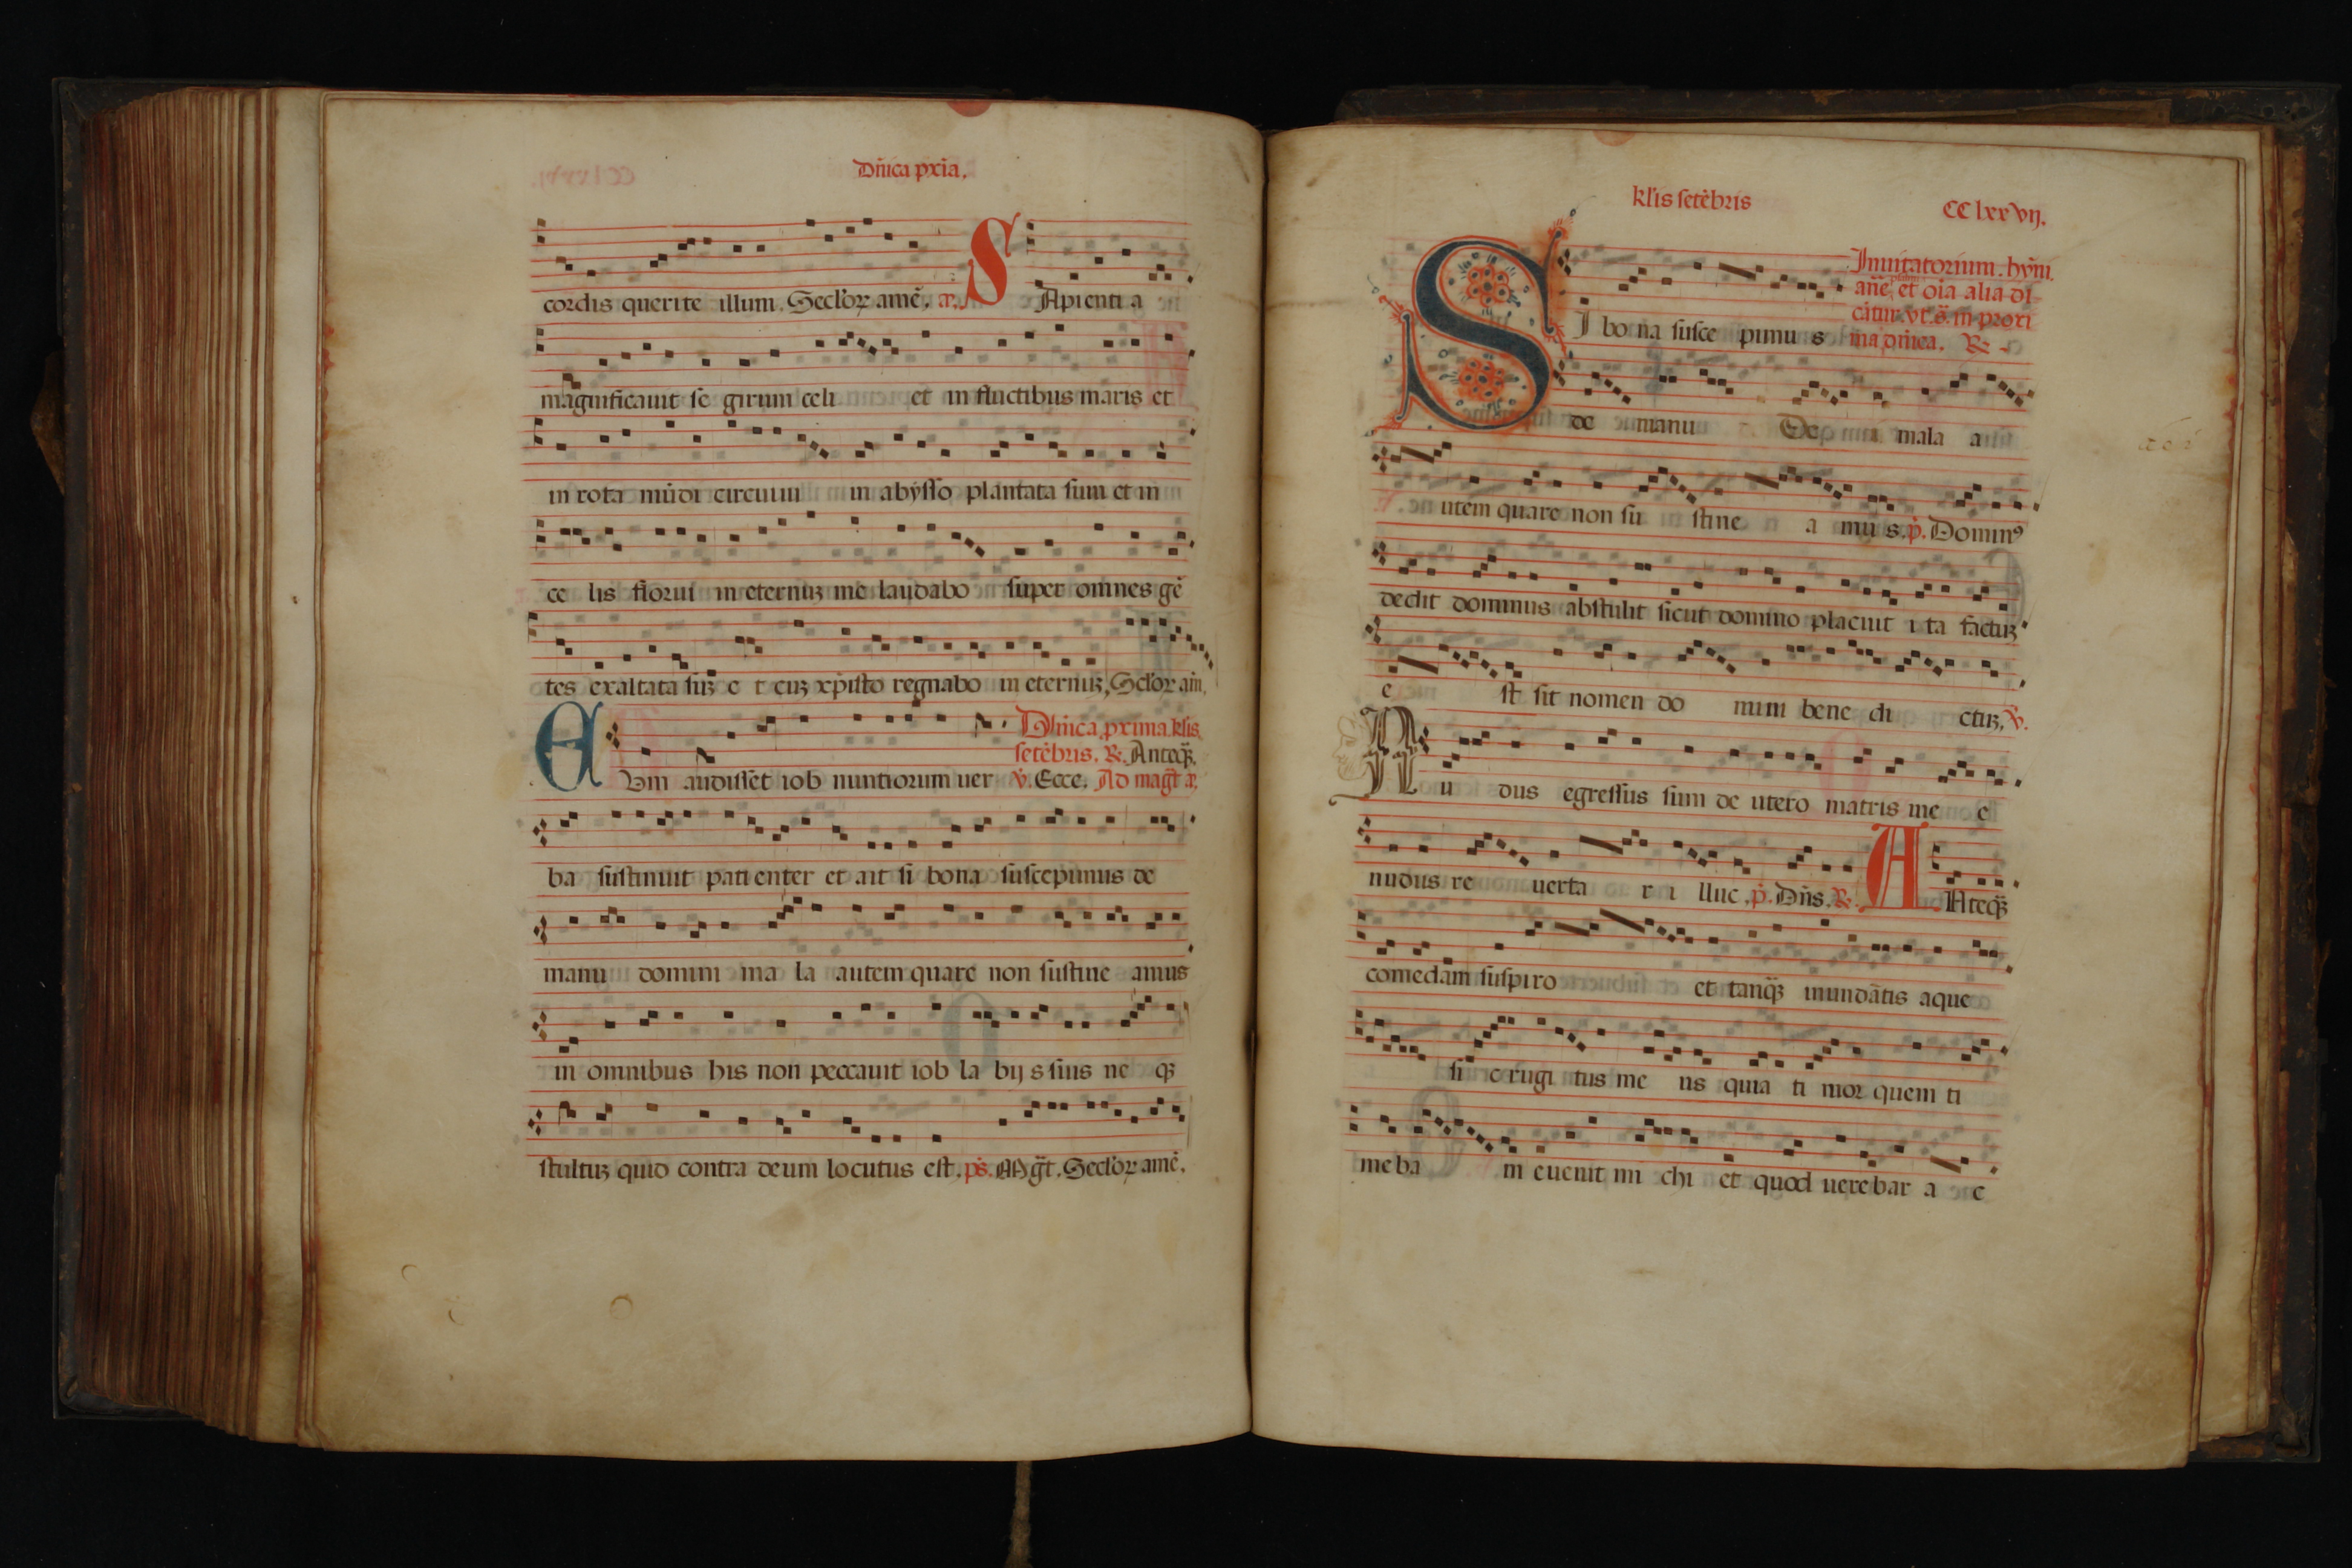 Dñica pxiã.
cordis querite illum. Secl'oꝝ amē. æ. S Apienti a
magnificauit se girum celi et in fluctibus maris et
in rota mūdi circuiui in abysso plantata sum et in
ce lis florui in eternuꝫ me laudabo super omnes gē
tes exaltata suꝫ e t cuꝫ xp̄isto regnabo in eternuꝫ, Scl'oꝝ am̄.
Dñica, pxima kl̄is
setēbris. ℟. Anteq̄ꝫ.
C Vm audisset iob nuntiorum uer ℣. Ecce. Ad mag̃t æ.
ba sustinuit pati enter et ait si bona suscepimus de
manu domini ma la autem quare non sustine amus
in omnibus his non peccauit iob la bijs suis ne qꝫ
stultuꝫ quid contra deum locutus est. p̄s. Mg̃t. Secl'oꝝ amē.
kl̄is setēbris CC lxxvij.
Inuitatorium. hȳm.
añe, et oīa alia di
cātur. vt. s̄. in proxi
ma dñica. ℟
S I bo na susce pimu s
de manu De i mala a
utem quare non su stine a mu s. p̄. Dominꝰ
dedit dominus abstulit sicut domino placuit i ta factuꝫ
e st sit nomen do mini bene di ctuꝫ, ℣.
N u dus egressus sum de utero matris me e
nudus re uerta r i lluc. p̄. Dñs. ℟. A Nteq̄ꝫ
comedam suspiro et tanq̄ꝫ inundātis aque
si c rugi tus me us quia ti mor quem ti
me ba m euenit mi chi et quod uerebar a c